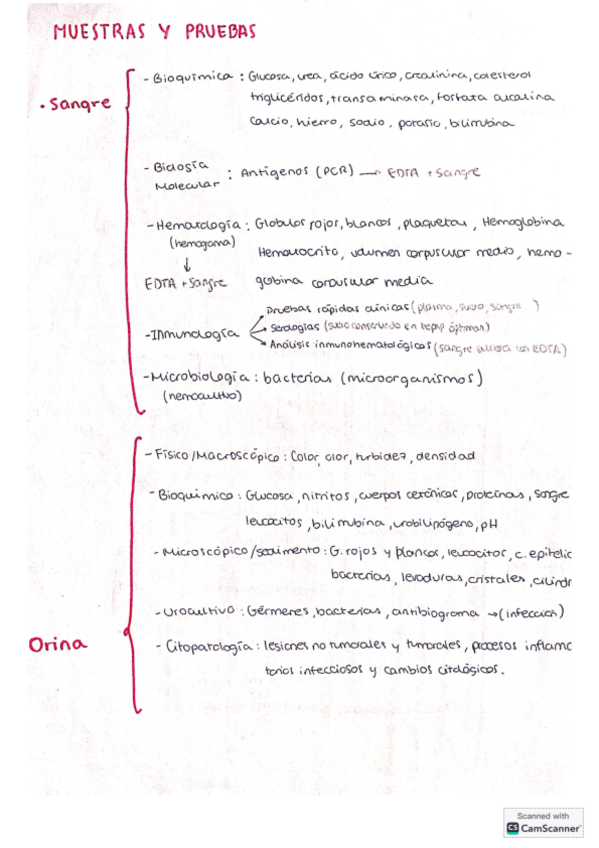 MUESTRAS Y PRUEBAS
- Bioquímica : Glucosa, urea, ácido úrico, creatinina, colesterol
• Sangre
triglicéridos, transaminasa, fosfata alcalina
Calcio, hierro, sodio, potasio, bilirrubina
- Biología
Molecular : Antígenos (PCR) → EDTA + Sangre
- Hematología : Globulos rojos, blancos, plaquetas, Hemoglobina
(hemograma)
Hematocrito, volumen corpuscular medio, hemo -
↓
EDTA + Sangre
globina corpuscular media
Pruebas rápidas clínicas (plasma, suero, sangre )
- Inmunología
Serologías (suero conservado en tiempo óptimas)
Análisis inmunohematológicos (sangre con EDTA)
- Microbiología : bacterias (microorganismos)
(hemocultivo)
- Físico/Macroscópico : Color, olor, turbidez, densidad
- Bioquimico : Glucosa, nitritos, cuerpos cetónicos, proteínas, sangre
leucocitos, bilirrubina, urobilinógeno, pH
- Microscópico/sedimento : G. rojos y blancos, leucocitos, c. epitelic
bacterias, levaduras, cristales, cilindr
- Urocultivo : Gérmenes, bacterias, antibiograma → (infección)
Orina
- Citopatología : lesiones no tumorales y tumorales, procesos inflama
torios infecciosos y cambios citológicos.
Scanned with
CS CamScanner